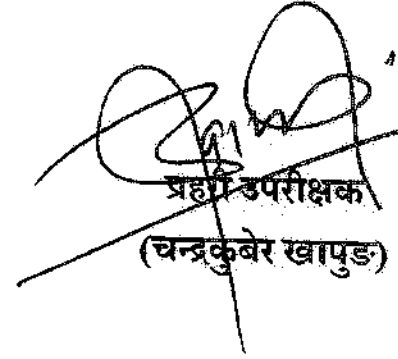 प्रहरी उपरीक्षक
(चन्द्रकुबेर खापुङ)